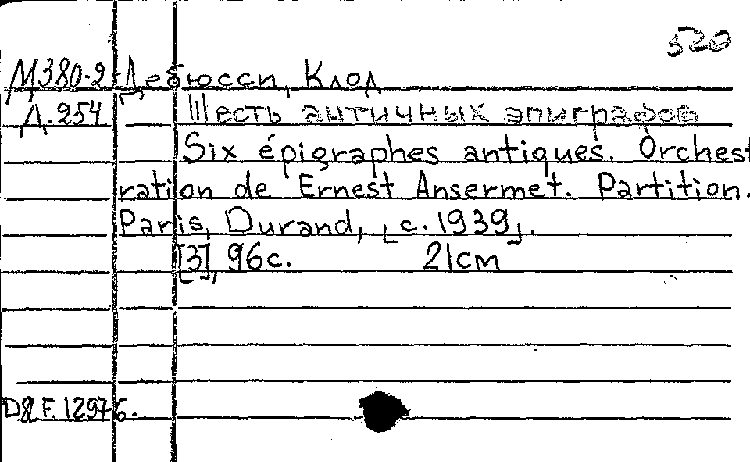 520
М380-2 Дебюсси, Клод
Д.254 Шесть античных эпиграфов
Six épigraphes antiques. Orchest
ration de Ernest Ansermet. Partition.
Paris, Durand, [c.1939].
[3], 96с. 21см
D&F. 12976.